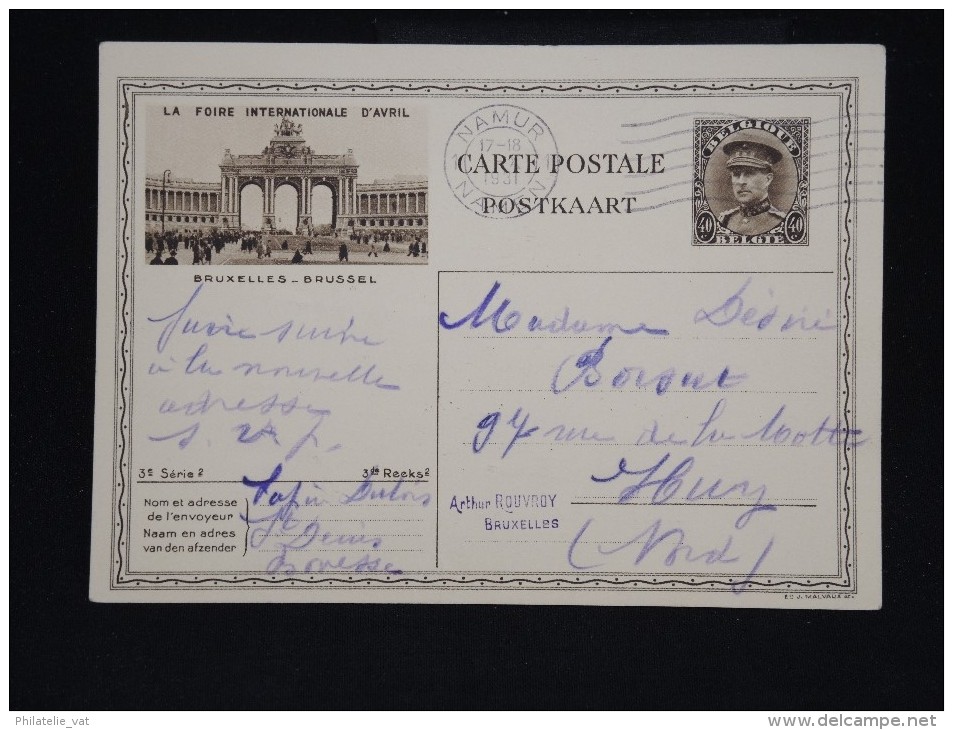 LA FOIRE INTERNATIONALE D'AVRIL
BRUXELLES - BRUSSEL
NAMUR
17-18
1931
NAMUR
CARTE POSTALE
POSTKAART
BELGIQUE
40 40
BELGIË
suivre
à la nouvelle
adresse
s. v. p.
3e Série 2
3de Reeks 2
Nom et adresse
de l'envoyeur
Naam en adres
van den afzender
Dubois
St Denis
Bovesse
Madame Désiré
97 rue de la Motte
Huy
(Nord)
Arthur ROUVROY
BRUXELLES
ED. J. MALVAUX
Philatelie_vat
http://www.delcampe.net